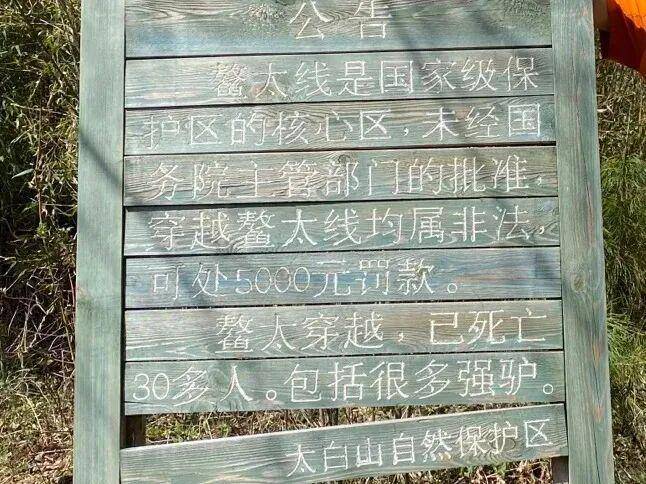 公告
鳌太线是国家级保
护区的核心区，未经国
务院主管部门的批准，
穿越鳌太线均属非法，
可处5000元罚款。
鳌太穿越，已死亡
30多人。包括很多强驴。
太白山自然保护区